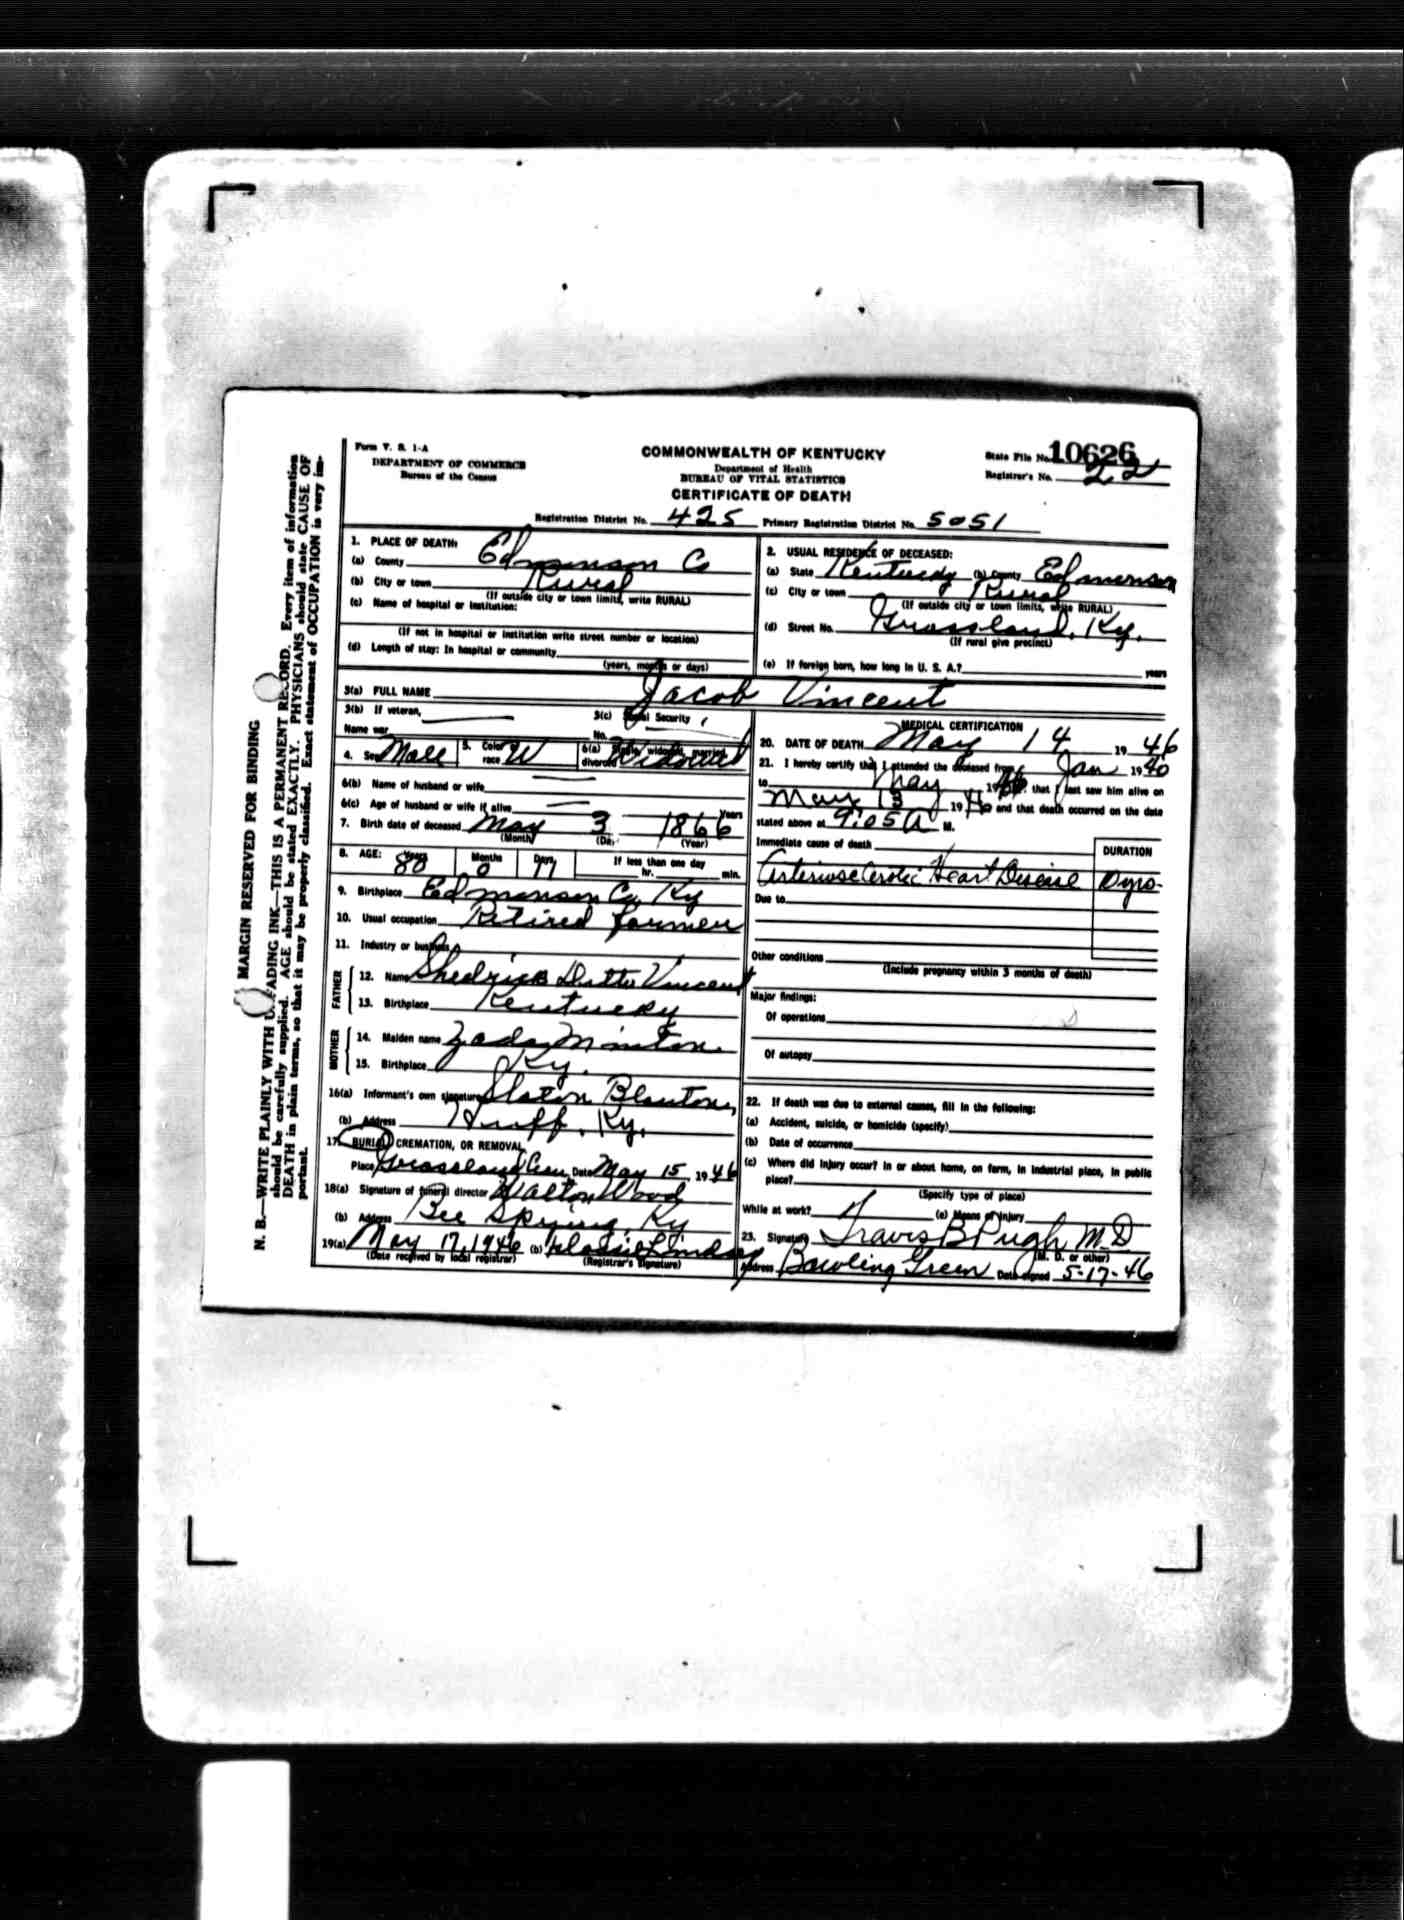 Form V. S. 1-A
DEPARTMENT OF COMMERCE
Bureau of the Census
COMMONWEALTH OF KENTUCKY
Department of Health
BUREAU OF VITAL STATISTICS
CERTIFICATE OF DEATH
State File No. 10626
Registrar's No. 22
Registration District No. 425 Primary Registration District No. 5051
1. PLACE OF DEATH:
(a) County Edmonson Co
(b) City or town Rural
(If outside city or town limits, write RURAL)
(c) Name of hospital or institution:
(If not in hospital or institution write street number or location)
(d) Length of stay: In hospital or community
(years, months or days)
2. USUAL RESIDENCE OF DECEASED:
(a) State Kentucky (b) County Edmonson
(c) City or town Rural
(If outside city or town limits, write RURAL)
(d) Street No. Grassland, Ky.
(If rural give precinct)
(e) If foreign born, how long in U. S. A.? years
3(a) FULL NAME Jacob Vincent
3(b) If veteran,
Name war
3(c) Social Security
No.
4. Sex Male 5. Color race W 6(a) Single, widowed, married, divorced Widowed
6(b) Name of husband or wife
6(c) Age of husband or wife if alive years
7. Birth date of deceased May 3 1866
(Month) (Day) (Year)
8. AGE: Years Months Days If less than one day
80 0 11 hr. min.
9. Birthplace Edmonson Co, Ky
10. Usual occupation Retired farmer
11. Industry or business
FATHER
12. Name Shedrick Ditto Vincent
13. Birthplace Kentucky
MOTHER
14. Maiden name Zada Minton
15. Birthplace Ky.
16(a) Informant's own signature Slaton Blanton,
(b) Address Huff, Ky.
17. BURIAL, CREMATION, OR REMOVAL
Place Grassland Cem Date May 15, 1946
18(a) Signature of funeral director Walton Wood
(b) Address Bee Spring, Ky
19(a) May 17, 1946 (b) Lindsey
(Date received by local registrar) (Registrar's signature)
MEDICAL CERTIFICATION
20. DATE OF DEATH May 14 1946
21. I hereby certify that I attended the deceased from Jan 1940
to May 19 that I last saw him alive on
May 13 1946 and that death occurred on the date
stated above at 9:05 A M.
Immediate cause of death
DURATION
Arteriosclerotic Heart Disease 10 yrs.
Due to
Other conditions
(Include pregnancy within 3 months of death)
Major findings:
Of operations
Of autopsy
22. If death was due to external causes, fill in the following:
(a) Accident, suicide, or homicide (specify)
(b) Date of occurrence
(c) Where did injury occur? In or about home, on farm, in industrial place, in public
place?
(Specify type of place)
While at work? (e) Means of injury
23. Signature Travis B Pugh M.D
(M. D. or other)
Address Bowling Green Date signed 5-17-46
MARGIN RESERVED FOR BINDING
N. B.—WRITE PLAINLY WITH UNFADING INK—THIS IS A PERMANENT RECORD. Every item of information
should be carefully supplied. AGE should be stated EXACTLY. PHYSICIANS should state CAUSE OF
DEATH in plain terms, so that it may be properly classified. Exact statement of OCCUPATION is very im-
portant.